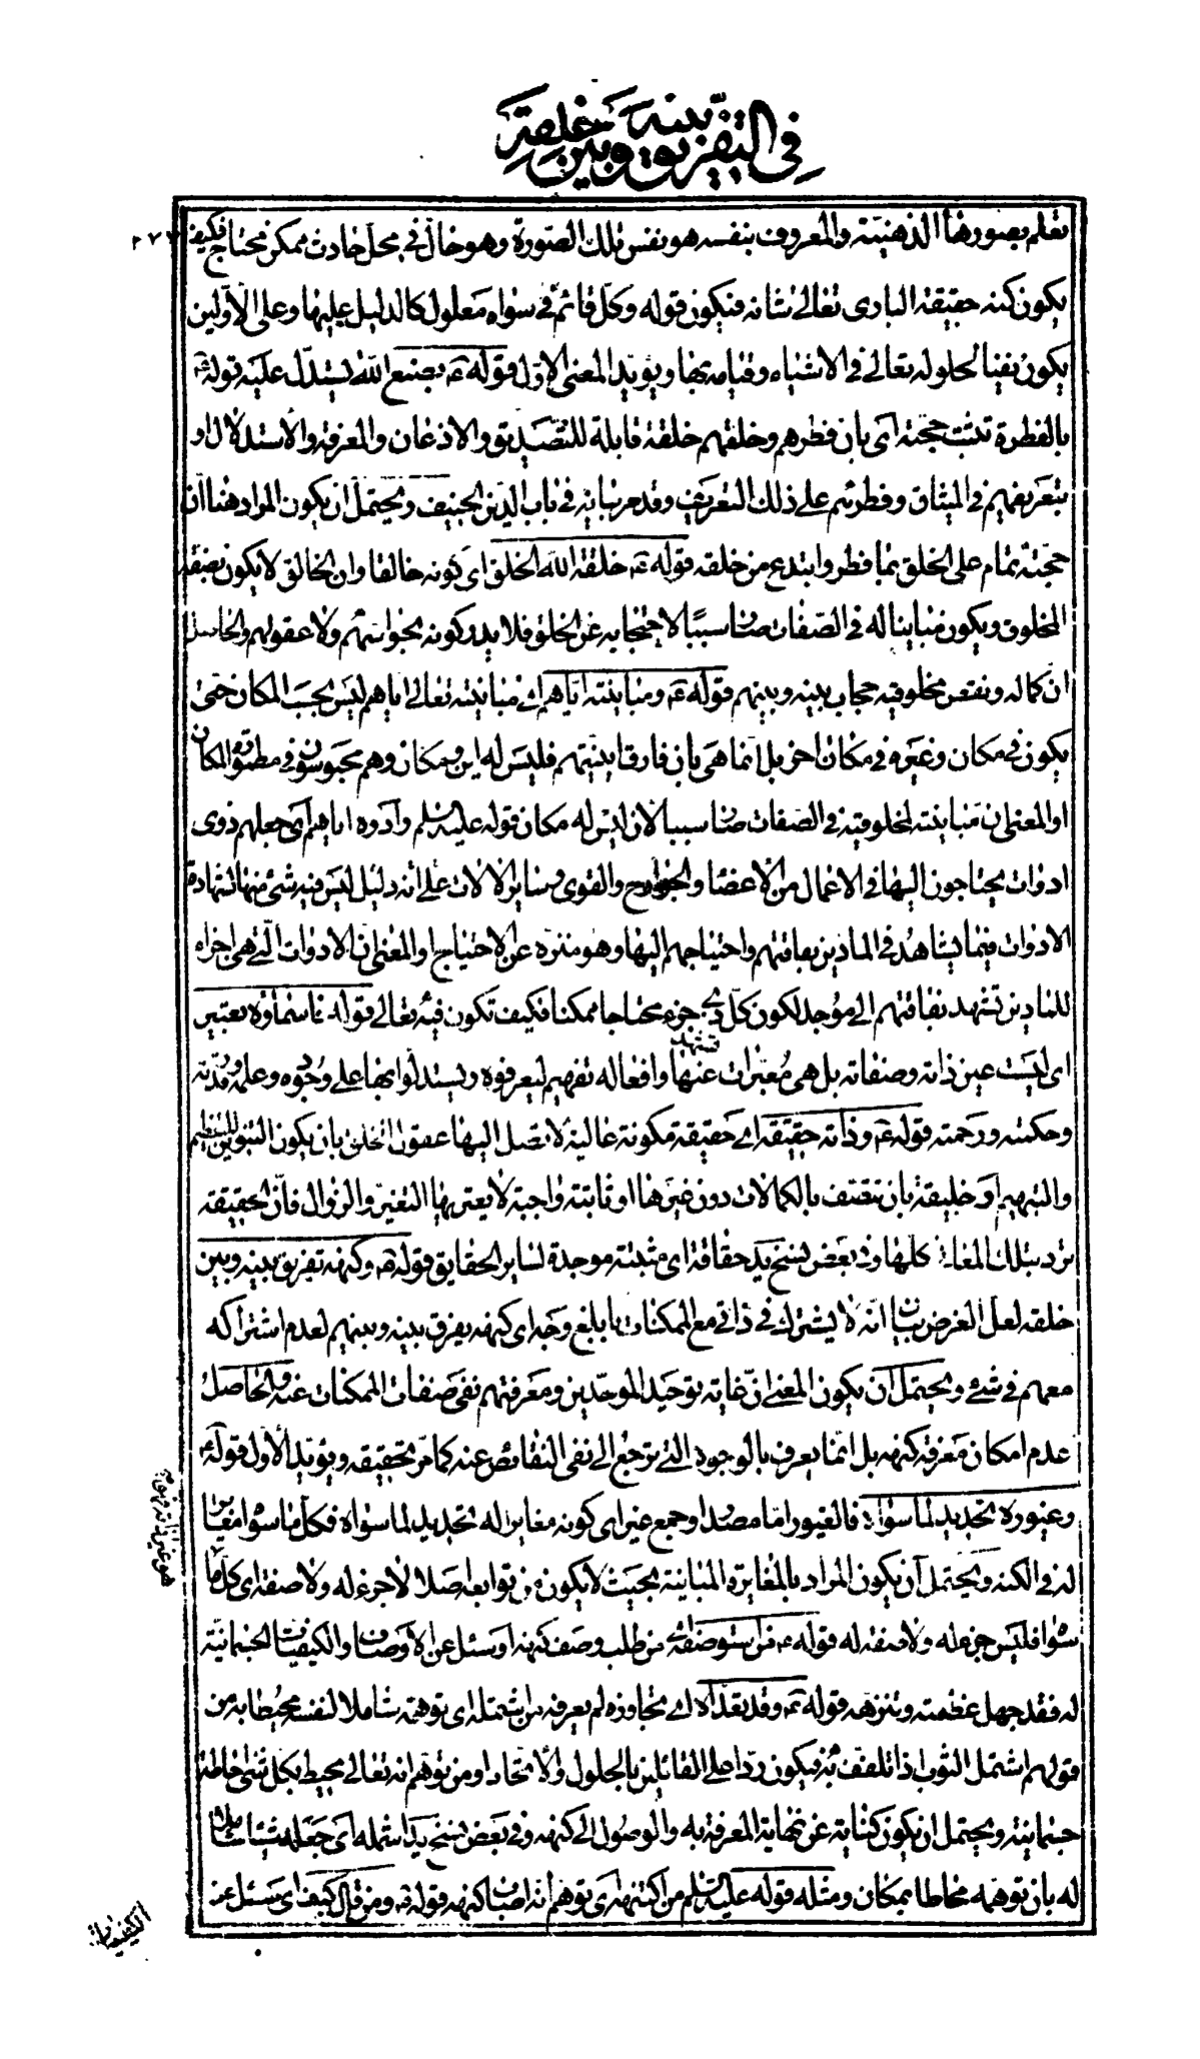 في التفريق بينه وبين خلقه
٢٧٣
تعلم بصورها الذهنية والمعروف بنفسه هو نفس تلك الصورة وهو حال في محل حادث ممكن محتاج فكيف
يكون كنه حقيقة البارى تعالى شانه فيكون قوله وكل قائم في سواه معلول كالدليل عليها وعلى الاولين
يكون نفيا لحلوله تعالى في الاشياء وقيامه بها ويؤيد المعنى الاول قوله ع بصنع الله يستدل عليه قوله ع
بالفطرة تثبت حجته اى بان فطرهم وخلقهم خلقة قابلة للتصديق والاذعان والمعرفة والاستدلال او
بتعريفهم في الميثاق وفطرهم على ذلك التعريف وقد مر بيانه في باب الدين الحنيف ويحتمل ان يكون المراد هنا ان
حجته تمام على الخلق بما فطر وابتدع من خلقه قوله ع خلقة الله الخلق اى كونه خالقا وان الخالق لا يكون بصفة
المخلوق ويكون مباينا له في الصفات صار سببا لاحتجابه عن الخلق فلا يدركونه بحواسهم ولا عقولهم والحاصل
ان كماله ونقص مخلوقيه حجاب بينه وبينهم قوله ع ومباينته اياهم اى مباينته تعالى اياهم ليس بحسب المكان حتى
يكون في مكان وغيره في مكان اخر بل انما هى بان فارق اينيتهم فليس له اين ومكان وهم محبوسون في مطمورة المكان
او المعنى ان مباينته لمخلوقيه في الصفات صار سببا لان ليس له مكان قوله عليه السلم وادوه اياهم اى جعلهم ذوى
ادوات يحتاجون اليها في الاعمال من الاعضاء والجوارح والقوى وساير الالات على انه دليل ليس فيه شئ منها لشهادة
الادوات فيما يشاهد في المادين بفاقتهم واحتياجهم اليها وهو منزه عن الاحتياج او المعنى ان الادوات التى هى اجزاء
للمادين تشهد بفاقتهم الى موجد لكون كل ذى جزء محتاجا ممكنا فكيف تكون فيه تعالى قوله فاسماؤه تعبير
اى ليست عين ذاته وصفاته بل هى معبرات عنها وافعاله تفهيم ليعرفوه ويستدلوا بها على وجوده وعلمه وقدرته
وحكمته ورحمته قوله ع وذاته حقيقة اى حقيقة مكنونة عالية لا تصل اليها عقول الخلق بان يكون التنوين للتعظيم
والتبهيم او خليقة بان تتصف بالكمالات دون غيرها او ثابتة واجبة لا يعتريها التغير والزوال فان الحقيقة
ترد بتلك المعاني كلها وفي بعض نسخ يد حقاقة اى مثبتة موجدة لساير الحقايق قوله ع وكنهه تفريق بينه وبين
خلقه لعل الغرض بيان انه لا يشترك في ذاتي مع الممكنات بابلغ وجه اى كنهه يفرق بينه وبينهم لعدم اشتراكه
معهم في شئ ويحتمل ان يكون المعنى ان غاية توحيد الموحدين ومعرفتهم نفى صفات الممكنات عنه والحاصل
عدم امكان معرفة كنهه بل انما يعرف بالوجوه التى ترجع الى نفى النقائص عنه كما مر تحقيقه ويؤيد الاول قوله ع
وغيوره تحديد لما سواه فالغيور اما مصدر او جمع غير اى كونه مغايرا له تحديد لما سواه فكل ما سواه مغاير
له في الكنه ويحتمل ان يكون المراد بالمغايرة المباينة بحيث لا يكون من توابعه اصلا لا جزء له ولا صفة اى كل ما
سواه فليس جزء له ولا صفة له قوله ع من استوصفه اى من طلب وصف كنهه او سئل عن الاوصاف والكيفيات الجسمانية
له فقد جهل عظمته وتنزهه قوله ع وقد تعداه اى تجاوزه لم يعرفه من اشتمله اى توهمه شاملا لنفسه محيطا به من
قولهم اشتمل الثوب اذا تلفف به فيكون ردا على القائلين بالحلول والاتحاد او من توهم انه تعالى محيط بكل شئ احاطة
جسمانية ويحتمل ان يكون كناية عن نهاية المعرفة به والوصول الى كنهه وفي بعض نسخ يد اشمله اى جعله شيئا شاملا
له بان توهمه محاطا بمكان ومثله قوله عليه السلم من اكتنهه اى توهم انه اصاب كنهه قوله ع ومن قال كيف اى سئل عن
الكيفيات